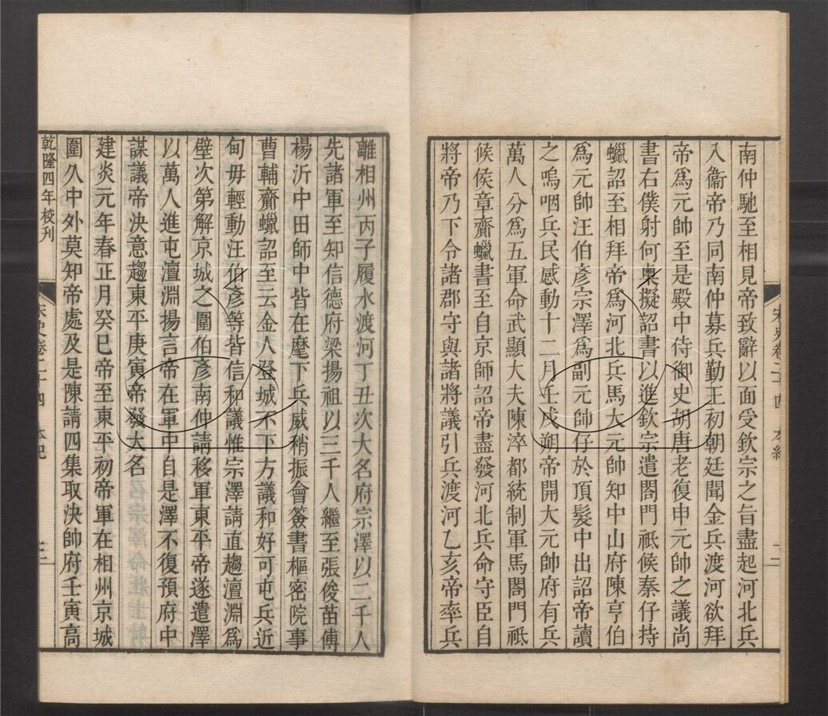 南仲馳至相見帝致辭以面受欽宗之旨盡起河北兵
入衞帝乃同南仲募兵勤王初朝廷聞金兵渡河欲拜
帝爲元帥至是殿中侍御史胡唐老復申元帥之議尚
書右僕射何㮚擬詔書以進欽宗遣閤門祇候秦仔持
蠟詔至相拜帝爲河北兵馬大元帥知中山府陳亨伯
爲元帥汪伯彥宗澤爲副元帥仔於頂髮中出詔帝讀
之嗚咽兵民感動十二月壬戌朔帝開大元帥府有兵
萬人分爲五軍命武顯大夫陳淬都統制軍馬閤門祇
候侯章齎蠟書至自京師詔帝盡發河北兵命守臣自
將帝乃下令諸郡守與諸將議引兵渡河乙亥帝率兵
宋史卷二十四 本紀 二
離相州丙子履水渡河丁丑次大名府宗澤以二千人
先諸軍至知信德府梁揚祖以三千人繼至張俊苗傅
楊沂中田師中皆在麾下兵威稍振會簽書樞密院事
曹輔齎蠟詔至云金人登城不下方議和好可屯兵近
甸毋輕動汪伯彥等皆信和議惟宗澤請直趨澶淵爲
壁次第解京城之圍伯彥南仲請移軍東平帝遂遣澤
以萬人進屯澶淵揚言帝在軍中自是澤不復預府中
謀議帝決意趨東平庚寅帝發大名
建炎元年春正月癸巳帝至東平初帝軍在相州京城
圍久中外莫知帝處及是陳請四集取決帥府壬寅高
乾隆四年校刊
宋史卷二十四 本紀 三